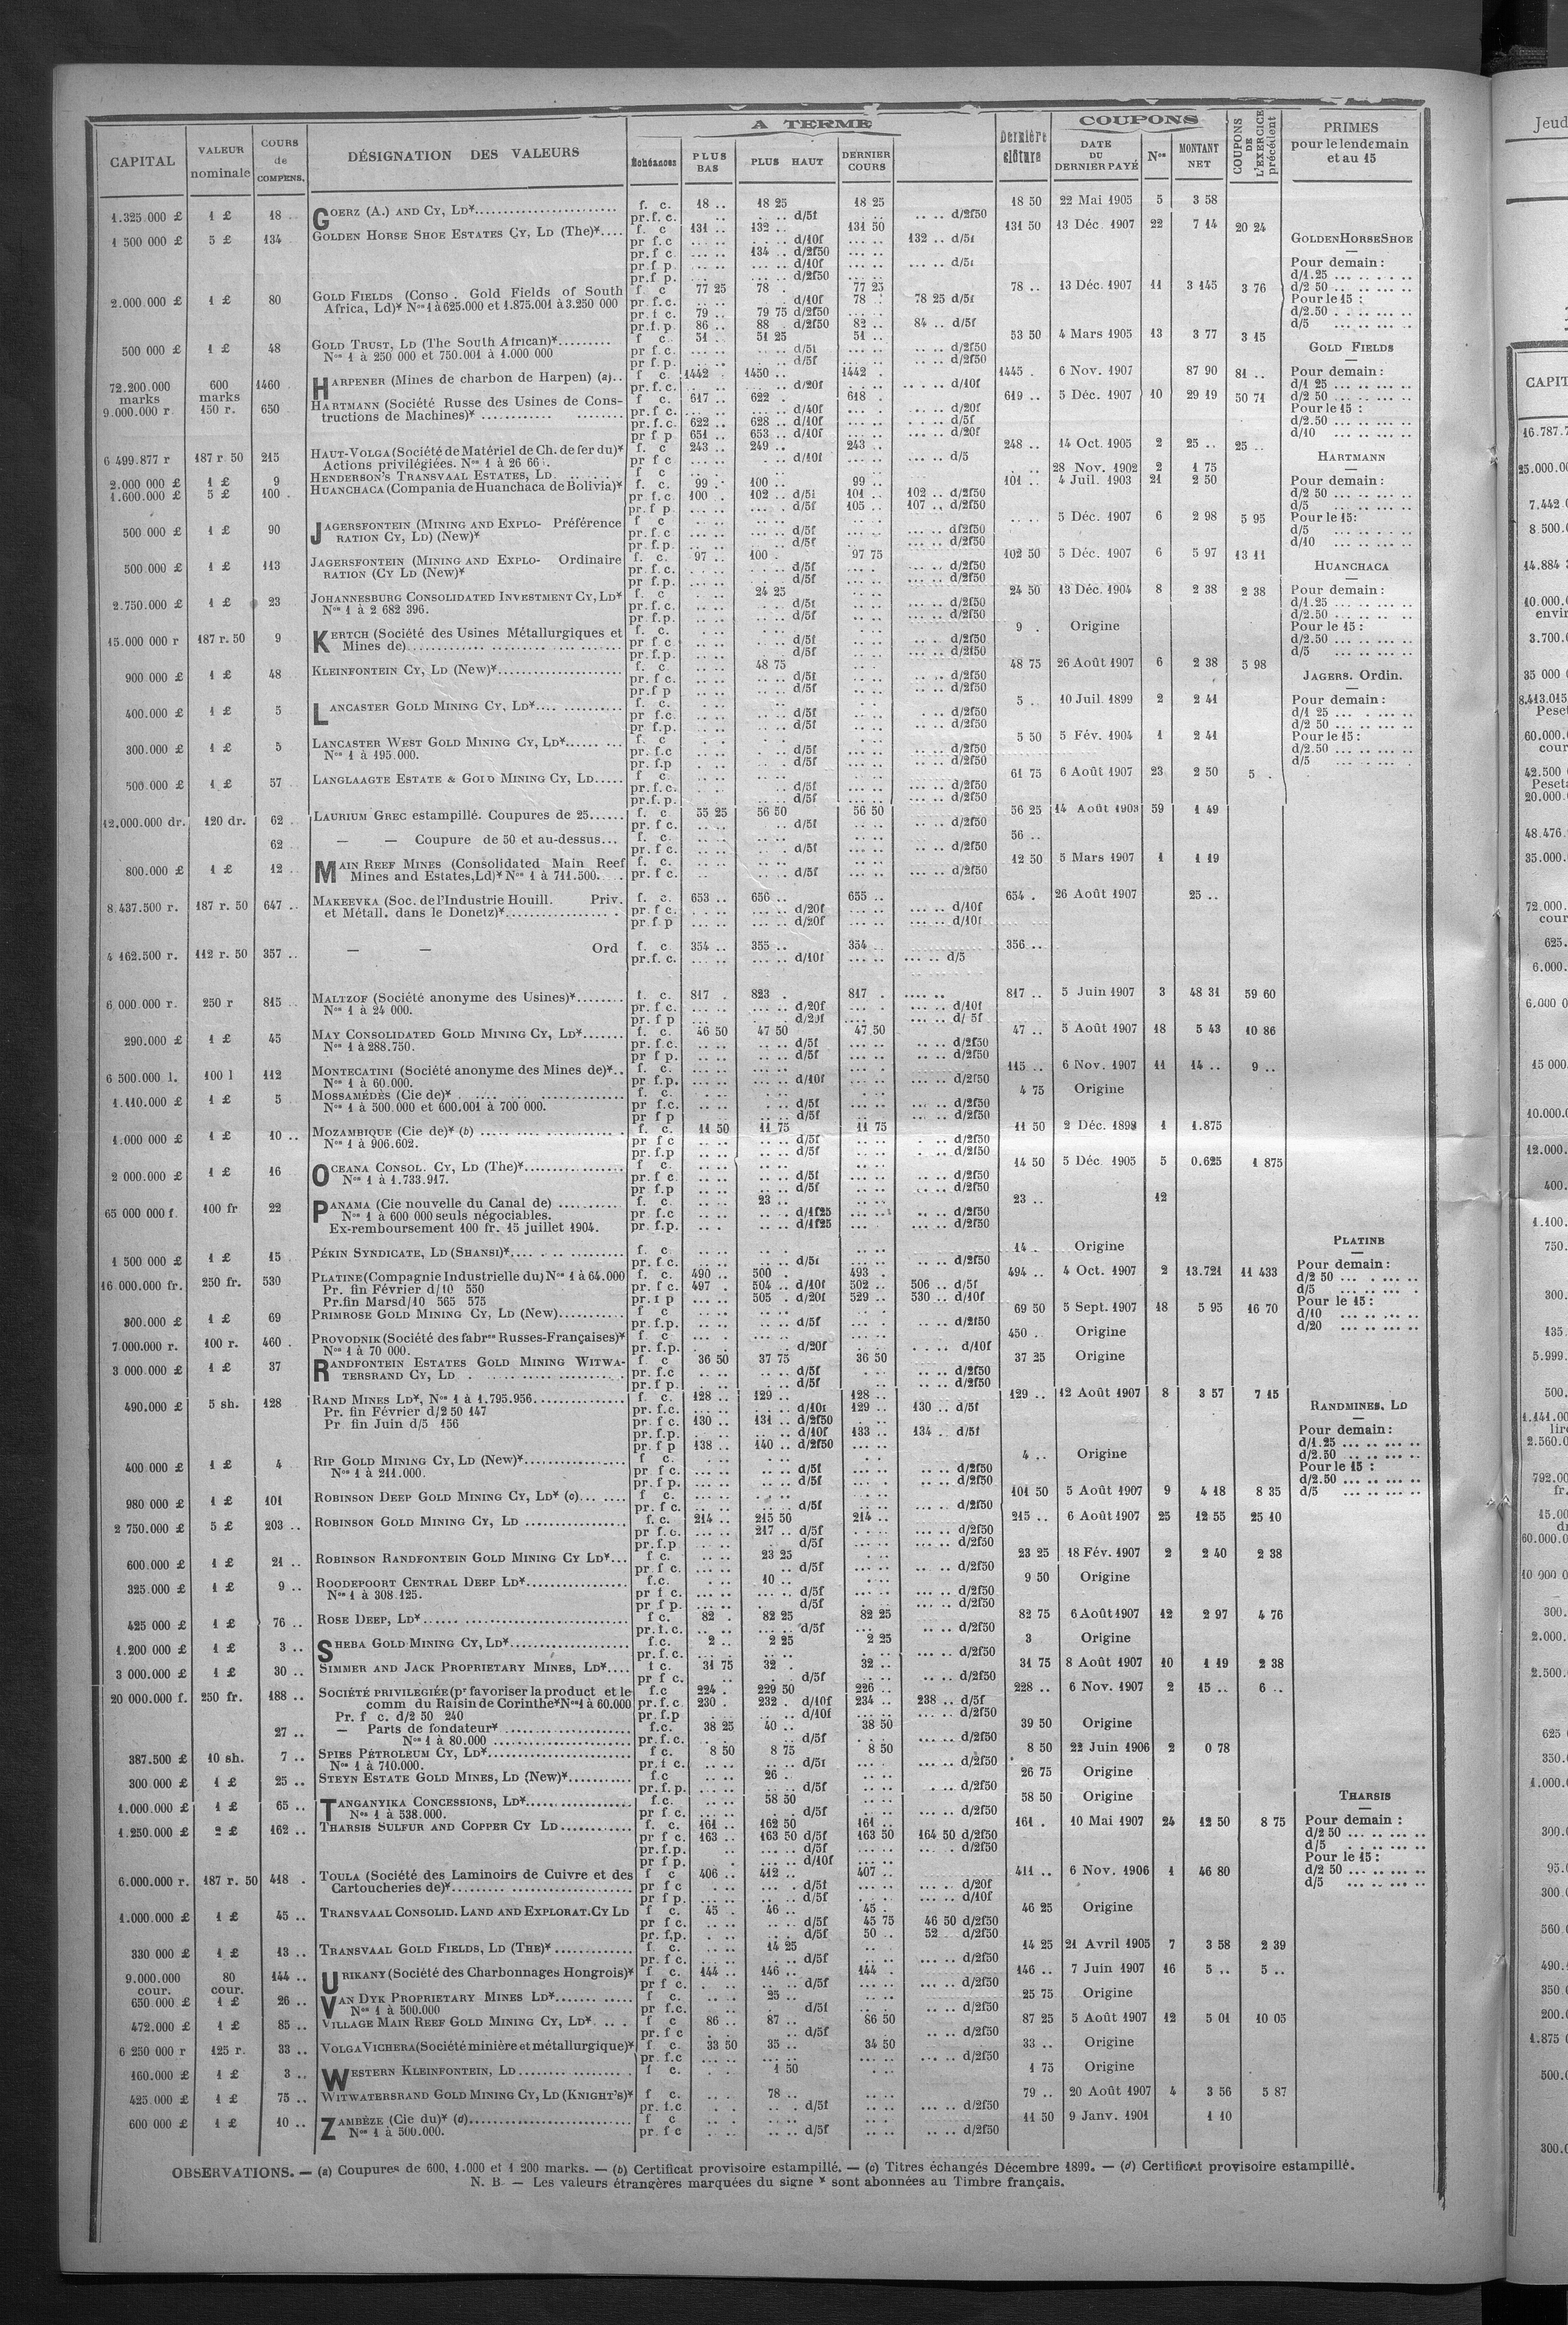 A TERME
COUPONS
CAPITAL VALEUR nominale COURS de COMPENS. DÉSIGNATION DES VALEURS Échéances PLUS BAS PLUS HAUT DERNIER COURS Dernière clôture DATE DU DERNIER PAYÉ Nos MONTANT NET COUPONS DE L'EXERCICE précédent PRIMES pour le lendemain et au 15
1.325.000 £ 1 £ 18 GOERZ (A.) AND CY, LD* f. c. 18 .. 18 25 18 25 18 50 22 Mai 1905 5 3 58
pr.f. c. d/5f d/2f50
1 500 000 £ 5 £ 134 GOLDEN HORSE SHOE ESTATES CY, LD (The)* f. c 131 .. 132 .. 131 50 131 50 13 Déc. 1907 22 7 14 20 24
pr f.c d/10f 132 .. d/5f
pr.f c 134 .. d/2f50
pr.f p d/10f d/5f
pr.f p. d/2f50
2.000.000 £ 1 £ 80 GOLD FIELDS (Conso . Gold Fields of South f. c 77 25 78 . 77 25 78 .. 13 Déc. 1907 11 3 145 3 76
Africa, Ld)* Nos 1 à 625.000 et 1.875.001 à 3.250 000 pr.f.c. d/10f 78 . 78 25 d/5f
pr. f c. 79 .. 79 75 d/2f50
pr.f.p 86 .. 88 . d/2f50 82 .. 84 .. d/5f
500 000 £ 1 £ 48 GOLD TRUST, LD (The South African)* f c. 51 .. 51 25 51 .. 53 50 4 Mars 1905 13 3 77 3 15
Nos 1 à 250 000 et 750.001 à 1.000 000 pr f.c. d/5f d/2f50
pr f.p. d/5f d/2f50
72.200.000 marks 600 marks 1460 HARPENER (Mines de charbon de Harpen) (a) f c. 1442 1450 .. 1442 . 1445 . 6 Nov. 1907 87 90 81 ..
pr.f.c. d/20f d/10f
9.000.000 r. 150 r. 650 HARTMANN (Société Russe des Usines de Cons- f. c. 617 .. 622 . 618 . 619 .. 5 Déc. 1907 10 29 19 50 71
tructions de Machines)* pr.f c. d/40f d/20f
pr.f.c. 622 .. 628 .. d/10f d/5f
pr f p 651 .. 653 .. d/10f d/20f
6 499.877 r 187 r. 50 215 HAUT-VOLGA (Société de Matériel de Ch. de fer du)* f. c 243 .. 249 .. 243 .. 248 .. 14 Oct. 1905 2 25 .. 25 ..
Actions privilégiées. Nos 1 à 26 66 . pr f c d/10f d/5
2.000 000 £ 1 £ 9 HENDERSON'S TRANSVAAL ESTATES, LD f c 28 Nov. 1902 2 1 75
1.600.000 £ 5 £ 100 . HUANCHACA (Compania de Huanchaca de Bolivia)* f. c. 99 .. 100 .. 99 .. 101 .. 4 Juil. 1903 21 2 50
pr f.c 100 . 102 .. d/5f 101 .. 102 .. d/2f50
pr. f p d/5f 105 .. 107 .. d/2f50
500 000 £ 1 £ 90 JAGERSFONTEIN (MINING AND EXPLO- Préférence f c 5 Déc. 1907 6 2 98 5 95
RATION CY, LD) (New)* pr.f c d/5f df2f50
pr.f.p. d/5f d/2f50
500 000 £ 1 £ 113 JAGERSFONTEIN (MINING AND EXPLO- Ordinaire f. c. 97 .. 100 . 97 75 102 50 5 Déc. 1907 6 5 97 13 11
RATION (CY LD (New)* pr. f.c. d/5f d/2f50
pr f.p. d/5f d/2f50
2.750.000 £ 1 £ 23 JOHANNESBURG CONSOLIDATED INVESTMENT CY, LD* f. c 24 25 24 50 13 Déc. 1904 8 2 38 2 38
Nos 1 à 2 682 396. pr.f.c. d/5f d/2f50
pr f.p. d/5f d/2f50
15.000 000 r 187 r. 50 9 KERTCH (Société des Usines Métallurgiques et f. c. 9 . Origine
Mines de) pr f c d/5f d/2f50
pr. f.p. d/5f d/2f50
900 000 £ 1 £ 48 KLEINFONTEIN CY, LD (New)* f. c. 48 75 48 75 26 Août 1907 6 2 38 5 98
pr. f c. d/5f d/2f50
pr.f p d/5f d/2f50
400.000 £ 1 £ 5 LANCASTER GOLD MINING CY, LD* f. c. 5 .. 10 Juil. 1899 2 2 41
pr f.c. d/5f d/2f50
pr. f.p. d/5f d/2f50
300.000 £ 1 £ 5 LANCASTER WEST GOLD MINING CY, LD* f c 5 50 5 Fév. 1904 1 2 41
Nos 1 à 195.000. pr. f.c d/5f d/2f50
pr. f.p d/5f d/2f50
500 000 £ 1 £ 57 LANGLAAGTE ESTATE & GOLD MINING CY, LD f c 61 75 6 Août 1907 23 2 50 5 .
pr. f.c. d/5f d/2f50
pr.f.p. d/5f d/2f50
12.000.000 dr. 120 dr. 62 . LAURIUM GREC estampillé. Coupures de 25 f. c. 55 25 56 50 56 50 56 25 14 Août 1903 59 1 49
pr f c. d/5f d/2f50
62 — — Coupure de 50 et au-dessus f. c. 56 ..
pr. f c. d/5f d/2f50
800.000 £ 1 £ 12 .. MAIN REEF MINES (Consolidated Main Reef f. c. 12 50 5 Mars 1907 1 1 19
Mines and Estates, Ld)* Nos 1 à 711.500. pr. f c. d/5f d/2f50
8.437.500 r. 187 r. 50 647 .. MAKEEVKA (Soc. de l'Industrie Houill. Priv. f. c. 653 .. 656 .. 655 .. 654 . 26 Août 1907 25 ..
et Métall. dans le Donetz)* pr f c. d/20f d/10f
pr.f p d/20f d/10f
4 162.500 r. 112 r. 50 357 .. — — Ord f. c. 354 .. 355 .. 354 .. 356 ..
pr.f. c. d/10f d/5
6,000.000 r. 250 r 815 .. MALTZOF (Société anonyme des Usines)* f. c. 817 . 823 . 817 . 817 .. 5 Juin 1907 3 48 31 59 60
Nos 1 à 24 000. pr. f.c. d/20f d/10f
pr. f p d/20f d/ 5f
290.000 £ 1 £ 45 MAY CONSOLIDATED GOLD MINING CY, LD* f. c. 46 50 47 50 47 50 47 .. 5 Août 1907 18 5 43 10 86
Nos 1 à 288.750. pr. f.c. d/5f d/2f50
pr f p. d/5f d/2f50
6 500.000 l. 100 l 112 MONTECATINI (Société anonyme des Mines de)* f. c. 115 .. 6 Nov. 1907 11 14 .. 9 ..
Nos 1 à 60.000. pr f.p. d/10f d/2f50
1.110.000 £ 1 £ 5 MOSSAMÉDÈS (Cie de)* f. c. 4 75 Origine
Nos 1 à 500.000 et 600.001 à 700 000. pr f.c. d/5f d/2f50
pr f p d/5f d/2f50
1.000 000 £ 1 £ 10 .. MOZAMBIQUE (Cie de)* (b) f. c. 11 50 11 75 11 75 11 50 2 Déc. 1898 1 1.875
Nos 1 à 906.602. pr f c d/5f d/2f50
pr. f.p d/5f d/2f50
2 000.000 £ 1 £ 16 OCEANA CONSOL. CY, LD (The)* f c. 14 50 5 Déc. 1905 5 0.625 1 875
Nos 1 à 1.733.917. pr. f c d/5f d/2f50
pr. f.p d/5f d/2f50
65 000 000 f. 100 fr 22 PANAMA (Cie nouvelle du Canal de) f. c. 23 .. 23 .. 12
Nos 1 à 600 000 seuls négociables. pr f.c d/1f25 d/2f50
Ex-remboursement 100 fr. 15 juillet 1904. pr. f.p. d/1f25 d/2f50
1 500 000 £ 1 £ 15 PÉKIN SYNDICATE, LD (SHANSI)* f. c. 14 . Origine
pr. f.c. d/5f d/2f50
16.000.000 fr. 250 fr. 530 PLATINE (Compagnie Industrielle du) Nos 1 à 64.000 f. c. 490 .. 500 . 493 . 494 .. 4 Oct. 1907 2 13.721 11 433
Pr. fin Février d/10 550 pr. f c. 497 . 504 .. d/10f 502 .. 506 .. d/5f
Pr.fin Mars d/10 565 575 pr. f p 505 . d/20f 529 .. 530 .. d/10f
300.000 £ 1 £ 69 PRIMROSE GOLD MINING CY, LD (New) f c 69 50 5 Sept. 1907 18 5 95 16 70
pr. f.p. d/5f d/2f50
7.000.000 r. 100 r. 460 . PROVODNIK (Société des fabres Russes-Françaises)* f c 450 . Origine
Nos 1 à 70 000. pr. f.p. d/20f d/10f
3 000.000 £ 1 £ 37 RANDFONTEIN ESTATES GOLD MINING WITWA- f c 36 50 37 75 36 50 37 25 Origine
TERSRAND CY, LD pr. f.c d/5f d/2f50
pr. f p. d/5f d/2f50
490.000 £ 5 sh. 128 RAND MINES LD*, Nos 1 à 1.795.956. f. c. 128 .. 129 .. 128 .. 129 .. 12 Août 1907 8 3 57 7 15
Pr. fin Février d/2 50 147 pr. f.c. d/10f 129 .. 130 .. d/5f
Pr fin Juin d/5 156 pr. f c. 130 .. 131 .. d/2f50
pr. f.p. d/10f 133 .. 134 .. d/5f
pr. f p 138 .. 140 .. d/2f50
400 000 £ 1 £ 4 RIP GOLD MINING CY, LD (New)* f c. 4 .. Origine
Nos 1 à 211.000. pr f c. d/5f d/2f50
pr. f p. d/5f d/2f50
980 000 £ 1 £ 101 ROBINSON DEEP GOLD MINING CY, LD* (c) f c. 101 50 5 Août 1907 9 4 18 8 35
pr. f c. d/5f d/2f50
2 750.000 £ 5 £ 203 .. ROBINSON GOLD MINING CY, LD f. c. 214 .. 215 50 214 .. 215 .. 6 Août 1907 25 12 55 25 10
pr f.c. 217 .. d/5f d/2f50
pr. f.p d/5f d/2f50
600.000 £ 1 £ 21 .. ROBINSON RANDFONTEIN GOLD MINING CY LD* f c. 23 25 23 25 18 Fév. 1907 2 2 40 2 38
pr f c. d/5f d/2f50
325.000 £ 1 £ 9 .. ROODEPOORT CENTRAL DEEP LD* f.c. 10 .. 9 50 Origine
Nos 1 à 308.125. pr f c. d/5f d/2f50
pr f p. d/5f d/2f50
425 000 £ 1 £ 76 .. ROSE DEEP, LD* f c. 82 . 82 25 82 25 82 75 6 Août 1907 12 2 97 4 76
pr. f.c. d/5f d/2f50
1.200 000 £ 1 £ 3 .. SHEBA GOLD MINING CY, LD* f.c. 2 .. 2 25 2 25 3 Origine
pr. f.c. d/2f50
3 000.000 £ 1 £ 30 .. SIMMER AND JACK PROPRIETARY MINES, LD* f c. 31 75 32 . 32 .. 31 75 8 Août 1907 10 1 19 2 38
pr f c. d/5f d/2f50
20 000.000 f. 250 fr. 188 .. SOCIÉTÉ PRIVILEGIÉE (pr favoriser la product et le f.c 224 . 229 50 226 .. 228 .. 6 Nov. 1907 2 15 .. 6 ..
comm du Raisin de Corinthe* Nos 1 à 60.000 pr. f.c. 230 . 232 . d/10f 234 .. 238 .. d/5f
Pr. f c. d/2 50 240 pr. f.p d/10f d/2f50
27 .. — Parts de fondateur* f.c. 38 25 40 .. 38 50 39 50 Origine
Nos 1 à 80.000 pr. f.c. d/5f d/2f50
387.500 £ 10 sh. 7 .. SPIES PÉTROLEUM CY, LD* f c. 8 50 8 75 8 50 8 50 22 Juin 1906 2 0 78
Nos 1 à 710.000. pr. f c. d/5f d/2f50
300 000 £ 1 £ 25 .. STEYN ESTATE GOLD MINES, LD (New)* f.c 26 .. 26 75 Origine
pr. f.p. d/5f d/2f50
1.000.000 £ 1 £ 65 .. TANGANYIKA CONCESSIONS, LD* f.c. 58 50 58 50 Origine
Nos 1 à 538.000. pr f c. d/5f d/2f50
1.250.000 £ 2 £ 162 .. THARSIS SULFUR AND COPPER CY LD f. c. 161 .. 162 50 161 .. 161 . 10 Mai 1907 24 12 50 8 75
pr f c. 163 .. 163 50 d/5f 163 50 164 50 d/2f50
pr. f.p. d/5f d/2f50
pr f p. d/10f
6.000.000 r. 187 r. 50 418 . TOULA (Société des Laminoirs de Cuivre et des f c 406 .. 412 .. 407 .. 411 .. 6 Nov. 1906 1 46 80
Cartoucheries de)* pr f c d/5f d/20f
pr f p. d/5f d/10f
1.000.000 £ 1 £ 45 .. TRANSVAAL CONSOLID. LAND AND EXPLORAT. CY LD f c. 45 . 46 .. 45 . 46 25 Origine
pr f c. d/5f 45 75 46 50 d/2f50
pr. f.p. d/5f 50 .. 52 d/2f50
330 000 £ 1 £ 13 .. TRANSVAAL GOLD FIELDS, LD (THE)* f. c. 14 25 14 25 21 Avril 1905 7 3 58 2 39
pr. f c. d/5f d/2f50
9.000.000 cour. 80 cour. 144 .. URIKANY (Société des Charbonnages Hongrois)* f c. 144 .. 146 .. 144 . 146 .. 7 Juin 1907 16 5 .. 5 ..
pr f c. d/5f d/2f50
650 000 £ 1 £ 26 .. VAN DYK PROPRIETARY MINES LD* f c. 25 .. 25 75 Origine
Nos 1 à 500.000 pr f.c. d/5f d/2f50
472.000 £ 1 £ 85 .. VILLAGE MAIN REEF GOLD MINING CY, LD* f c 86 .. 87 .. 86 50 87 25 5 Août 1907 12 5 01 10 05
pr. f c d/5f d/2f50
6 250 000 r 125 r. 33 .. VOLGA VICHERA (Société minière et métallurgique)* f c. 33 50 35 .. 34 50 33 .. Origine
pr. f.c d/2f50
160.000 £ 1 £ 3 .. WESTERN KLEINFONTEIN, LD f c. 1 50 1 75 Origine
425.000 £ 1 £ 75 .. WITWATERSRAND GOLD MINING CY, LD (KNIGHT'S)* f c. 78 .. 79 .. 20 Août 1907 4 3 56 5 87
pr. f.c d/5f d/2f50
600 000 £ 1 £ 10 .. ZAMBÈZE (Cie du)* (d) f c 11 50 9 Janv. 1901 1 10
Nos 1 à 500.000. pr. f c d/5f d/2f50
GOLDEN HORSE SHOE
Pour demain :
d/1.25
d/2 50
Pour le 15 :
d/2.50
d/5
GOLD FIELDS
Pour demain :
d/1 25
d/2 50
Pour le 15 :
d/2.50
d/10
HARTMANN
Pour demain :
d/2 50
d/5
Pour le 15:
d/5
d/10
HUANCHACA
Pour demain :
d/1.25
d/2.50
Pour le 15 :
d/2.50
d/5
JAGERS. Ordin.
Pour demain :
d/1 25
d/2 50
Pour le 15 :
d/2.50
d/5
PLATINE
Pour demain :
d/2 50
d/5
Pour le 15 :
d/10
d/20
RANDMINES. LD
Pour demain :
d/1.25
d/2.50
Pour le 15 :
d/2.50
d/5
THARSIS
Pour demain :
d/2 50
d/5
Pour le 15 :
d/2 50
d/5
OBSERVATIONS. — (a) Coupures de 600, 1.000 et 1 200 marks. — (b) Certificat provisoire estampillé. — (c) Titres échangés Décembre 1899. — (d) Certificat provisoire estampillé.
N. B. — Les valeurs étrangères marquées du signe * sont abonnées au Timbre français.
Jeud
CAPIT